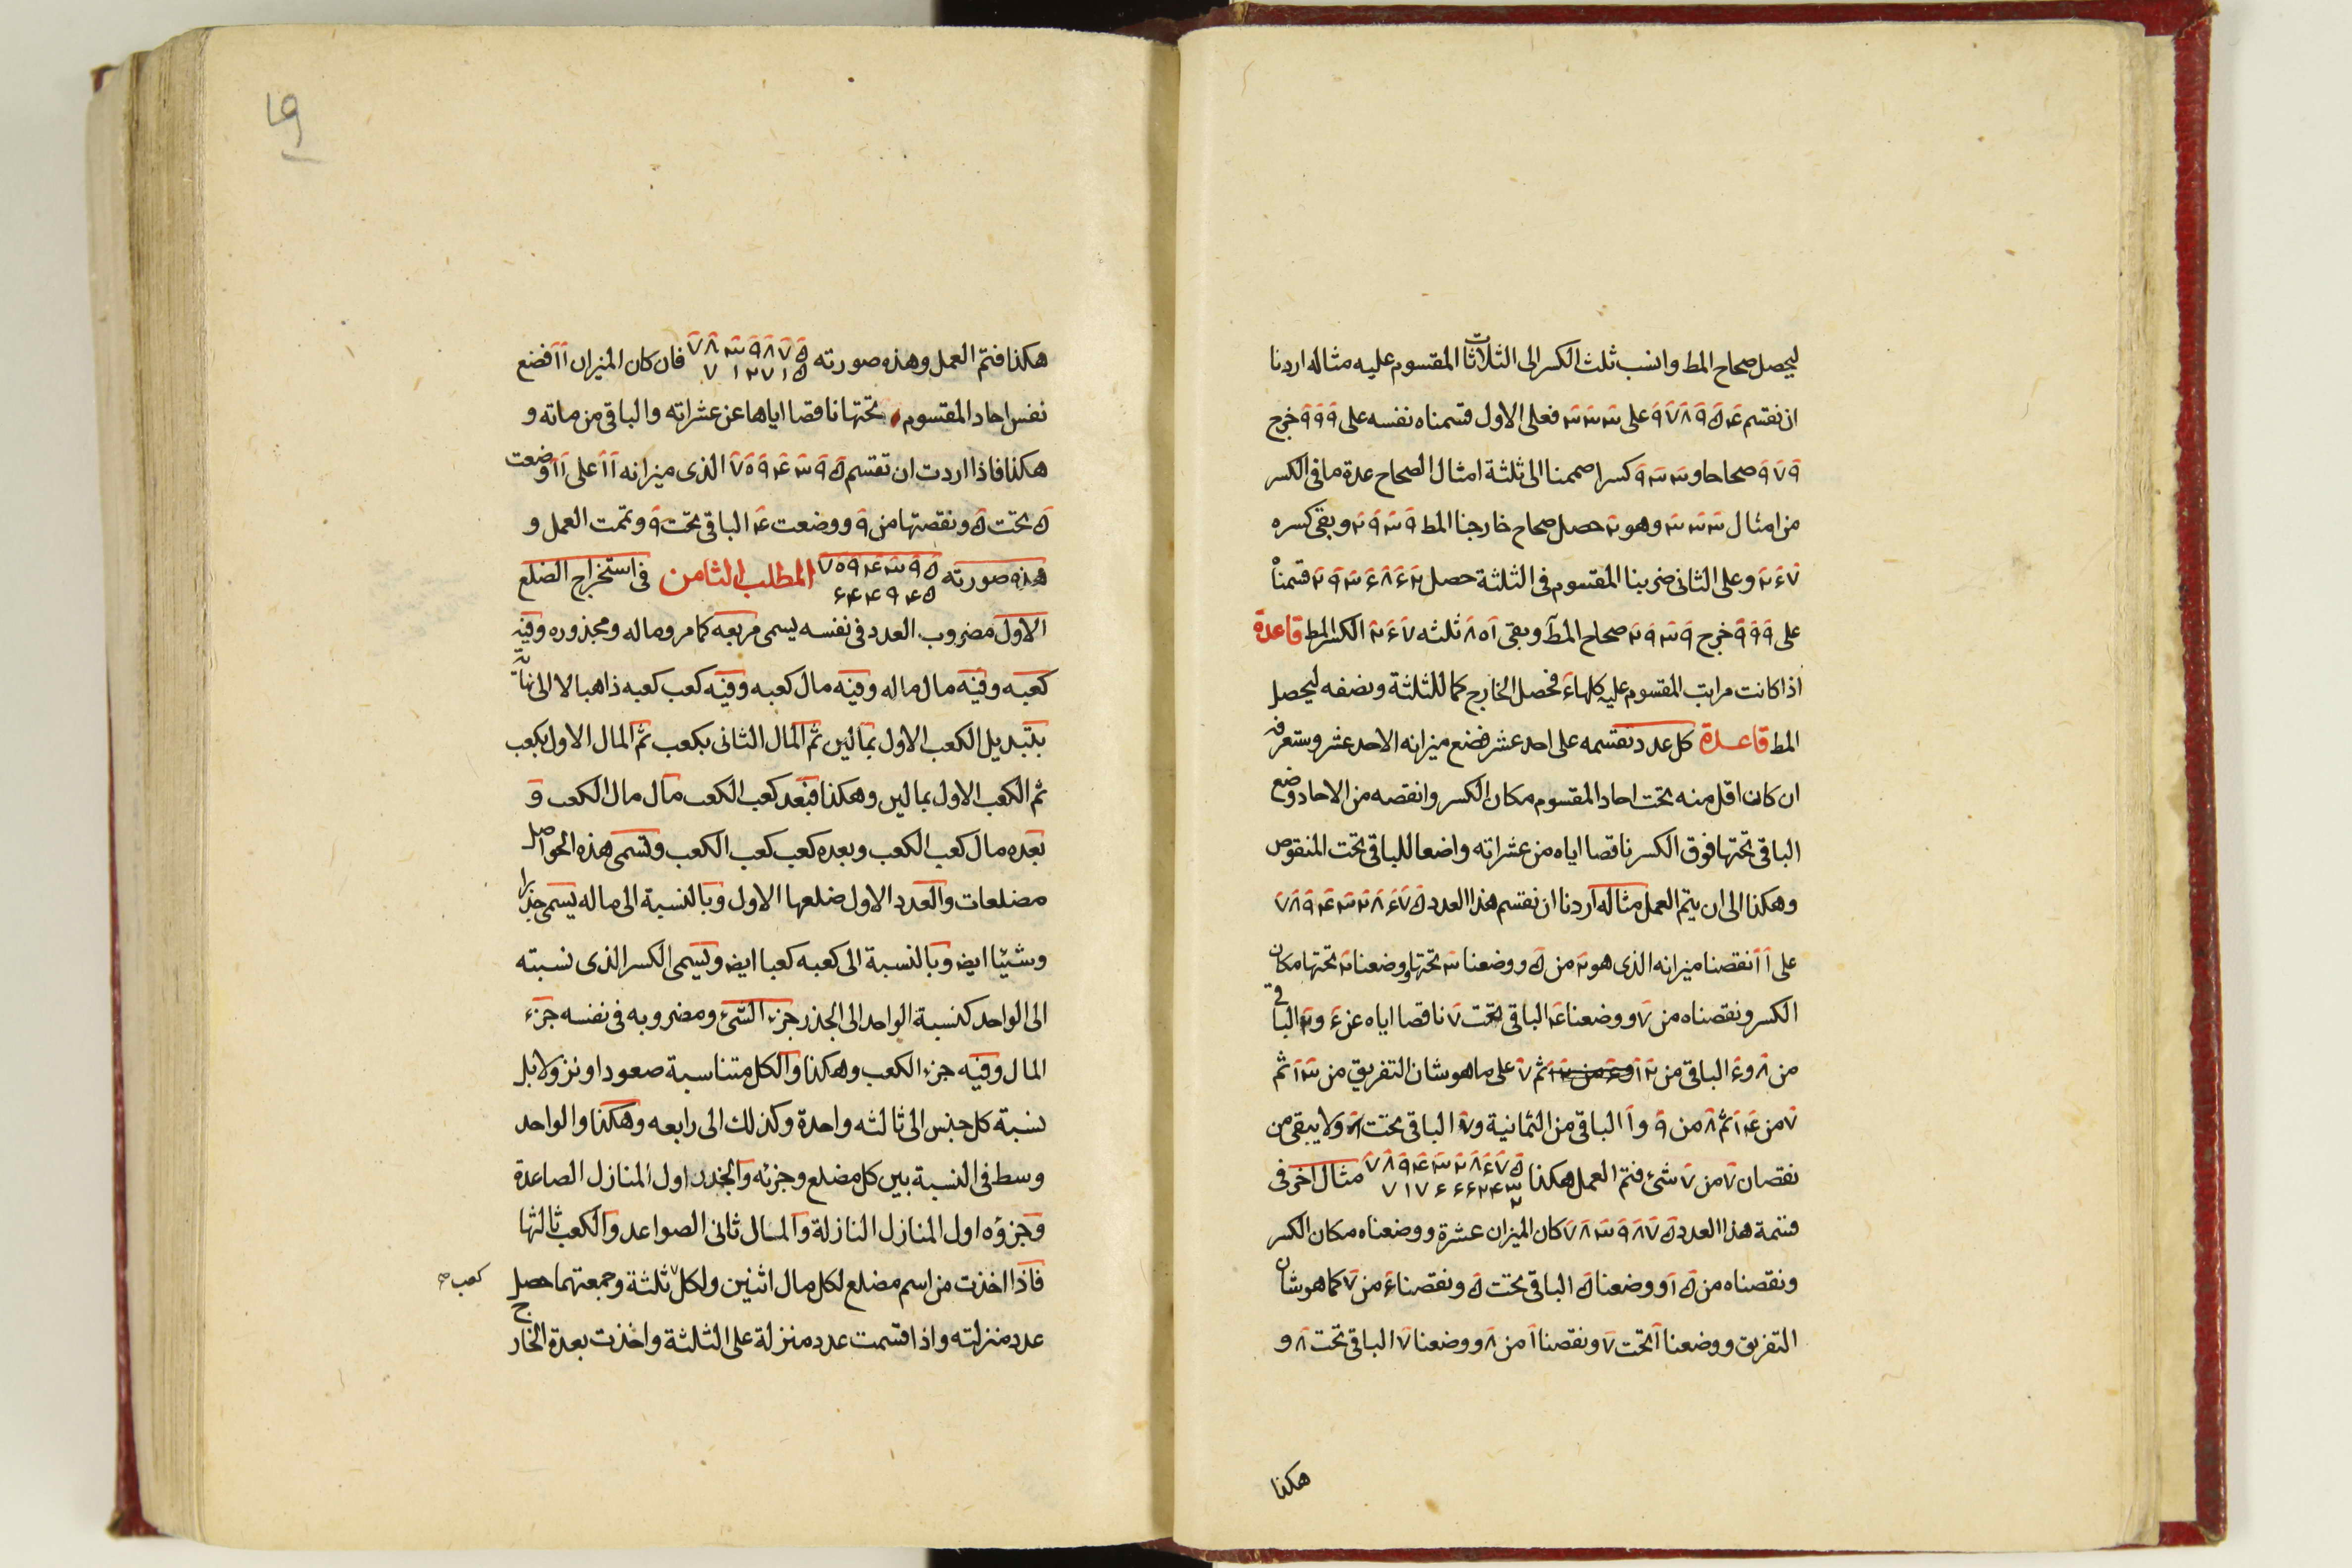 ليحصل صحاح المط وانسب ثلث الكسر الى الثلاثات المقسوم عليه مثاله اردنا
ان نقسم ۴ ۵ ۹ ۸ ۷ ۹ على ۳ ۳ ۳ فعلى الاول قسمناه نفسه على ۹ ۹ ۹ خرج
۹ ۷ ۹ صحاحا و ۳ ۳ ۹ كسرا ضممنا الى ثلثة امثال الصحاح عدة ما فى الكسر
من امثال ۳ ۳ ۳ وهو ۲ حصل صحاح خارجنا المط ۹ ۳ ۹ ۲ وبقى كسره
۷ ۶ ۲ وعلى الثانى ضربنا المقسوم فى الثلثة حصل ۲ ۶ ۸ ۶ ۳ ۹ ۲ قسمناه
على ۹ ۹ ۹ خرج ۹ ۳ ۹ ۲ صحاح المط وبقى ۱ ۰ ۸ ثلثه ۷ ۶ ۲ الكسر المط قاعدة
اذا كانت مراتب المقسوم عليه كلها ۶ فحصل الخارج كما للثلثة ونصفه ليحصل
المط قاعدة كل عدد تقسمه على احد عشر فضع ميزانه الاحد عشر وستعرفه
ان كان اقل منه تحت احاد المقسوم مكان الكسر وانقصه من الاحاد وضع
الباقى تحتها فوق الكسر ناقصا اياه من عشراته واضعا للباقى تحت المنقوص
وهكذا الى ان يتم العمل مثاله اردنا ان نقسم هذا العدد ۵ ۷ ۶ ۸ ۲ ۳ ۴ ۹ ۸ ۷
على ۱ ۱ نقصنا ميزانه الذى هو ۲ من ۵ ووضعنا ۳ تحتها ووضعنا ۲ تحتها مكان
الكسر ونقصناه من ۷ ووضعنا ۴ الباقى تحت ۷ ناقصا اياه عن ۶ و ۲ الباقى
من ۸ و ۶ الباقى من ۲ ۱ ثم ۷ على ما هو شان التفريق من ۳ ۱ ثم
۷ من ۴ ۱ ثم ۸ من ۹ و ۱ الباقى من الثمانية و ۷ الباقى تحت ولا يبقى من
نقصان ۷ من ۷ شئ فتم العمل هكذا ۵ ۷ ۶ ۸ ۲ ۳ ۴ ۹ ۸ ۷ مثال اخر فى
۳ ۴ ۲ ۶ ۶ ۶ ۷ ۱ ۷
۲
قسمة هذا العدد ۵ ۷ ۸ ۹ ۳ ۸ ۷ كان الميزان عشرة ووضعناه مكان الكسر
ونقصناه من ۵ ۱ ووضعنا ۵ الباقى تحت ۵ ونقصنا ۶ من ۷ كما هو شان
التفريق ووضعنا ۱ تحت ۷ ونقصنا ۱ من ۸ ووضعنا ۷ الباقى تحت ۸ و
هكذا
۶۹
هكذا فتم العمل وهذه صورته ۵ ۷ ۸ ۹ ۳ ۸ ۷ فان كان الميزان ۱ ۱ فضع
۵ ۱ ۷ ۲ ۱ ۷
نفس احاد المقسوم تحتها ناقصا اياها عن عشراته والباقى من ماته و
هكذا فاذا اردت ان تقسم ۵ ۹ ۳ ۴ ۹ ۵ ۷ الذى ميزانه ۱ ۱ على ۱ ۱ وضعت
۵ تحت ۵ ونقصتها من ۹ ووضعت ۴ الباقى تحت ۹ وتممت العمل و
هذه صورته ۵ ۹ ۳ ۴ ۹ ۵ ۷ المطلب الثامن فى استخراج الضلع
۵ ۴ ۹ ۴ ۴ ۶
الاول مضروب العدد فى نفسه يسمى مربعه كما مر وماله ومجذوره وفيه
كعبه وفيه مال ماله وفيه مال كعبه وفيه كعب كعبه ذاهبا لا الى نهاية
بتبديل الكعب الاول بمالين ثم المال الثانى بكعب ثم المال الاول بكعب
ثم الكعب الاول بمالين وهكذا فبعد كعب الكعب مال مال الكعب و
بعده مال كعب الكعب وبعده كعب كعب الكعب وتسمى هذه الحواصل
مضلعات والعدد الاول ضلعها الاول وبالنسبة الى ماله يسمى جذرا
وشيئا ايض وبالنسبة الى كعبه كعبا ايض ويسمى الكسر الذى نسبته
الى الواحد كنسبة الواحد الى الجذر جزء الشئ ومضروبه فى نفسه جزء
المال وفيه جزء الكعب وهكذا والكل متناسبة صعودا ونزولا بل
نسبة كل جنس الى ثالثه واحدة وكذلك الى رابعه وهكذا والواحد
وسط فى النسبة بين كل مضلع وجزئه والجذر اول المنازل الصاعدة
وجزؤه اول المنازل النازلة والمال ثانى الصواعد والكعب ثالثها
فاذا اخذت من اسم مضلع لكل مال اثنين ولكل ثلثة وجمعتهما حصل
كعب
عدد منزلته واذا قسمت عدد منزلة على الثلثة واخذت بعدة الخارج